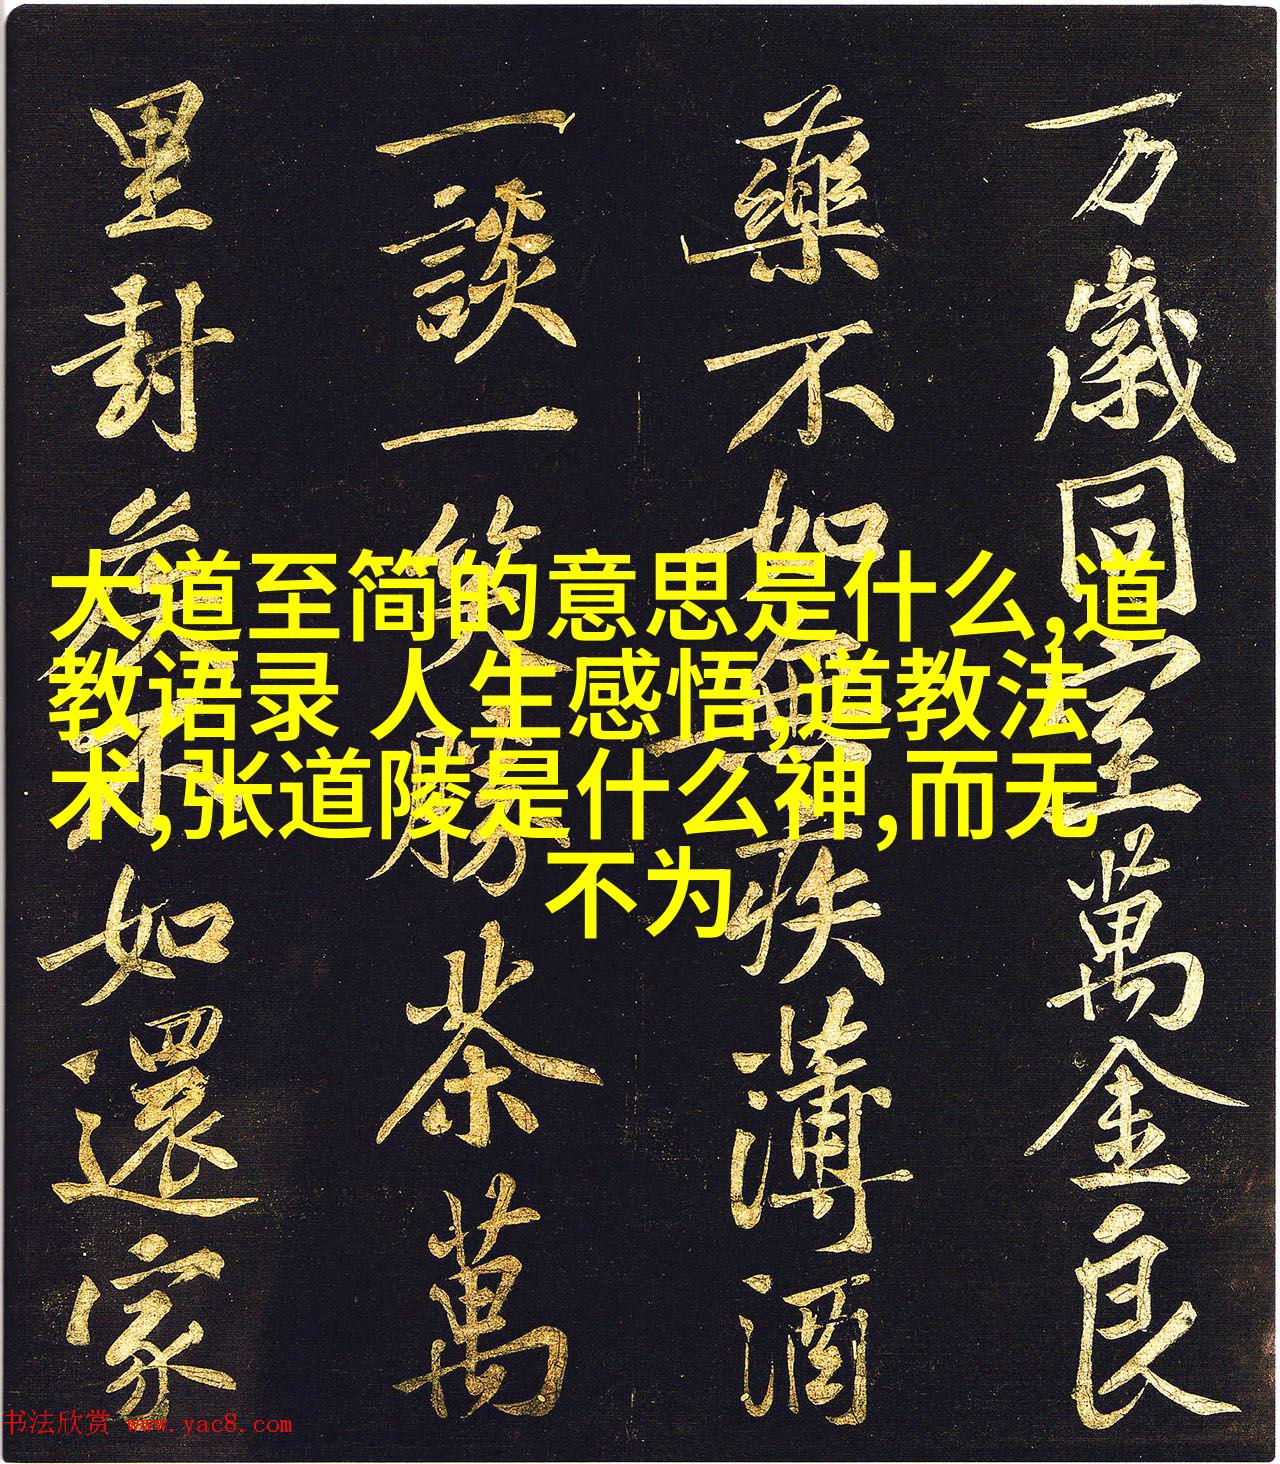 万歲同室萬金良
藥不如無疾薄酒
一談一笑勝茶萬
里封侯不如還家
大道至简的意思是什么,道
教语录 人生感悟,道教法
术,张道陵是什么神,而无
不为
书法欣赏 www.yac8.com